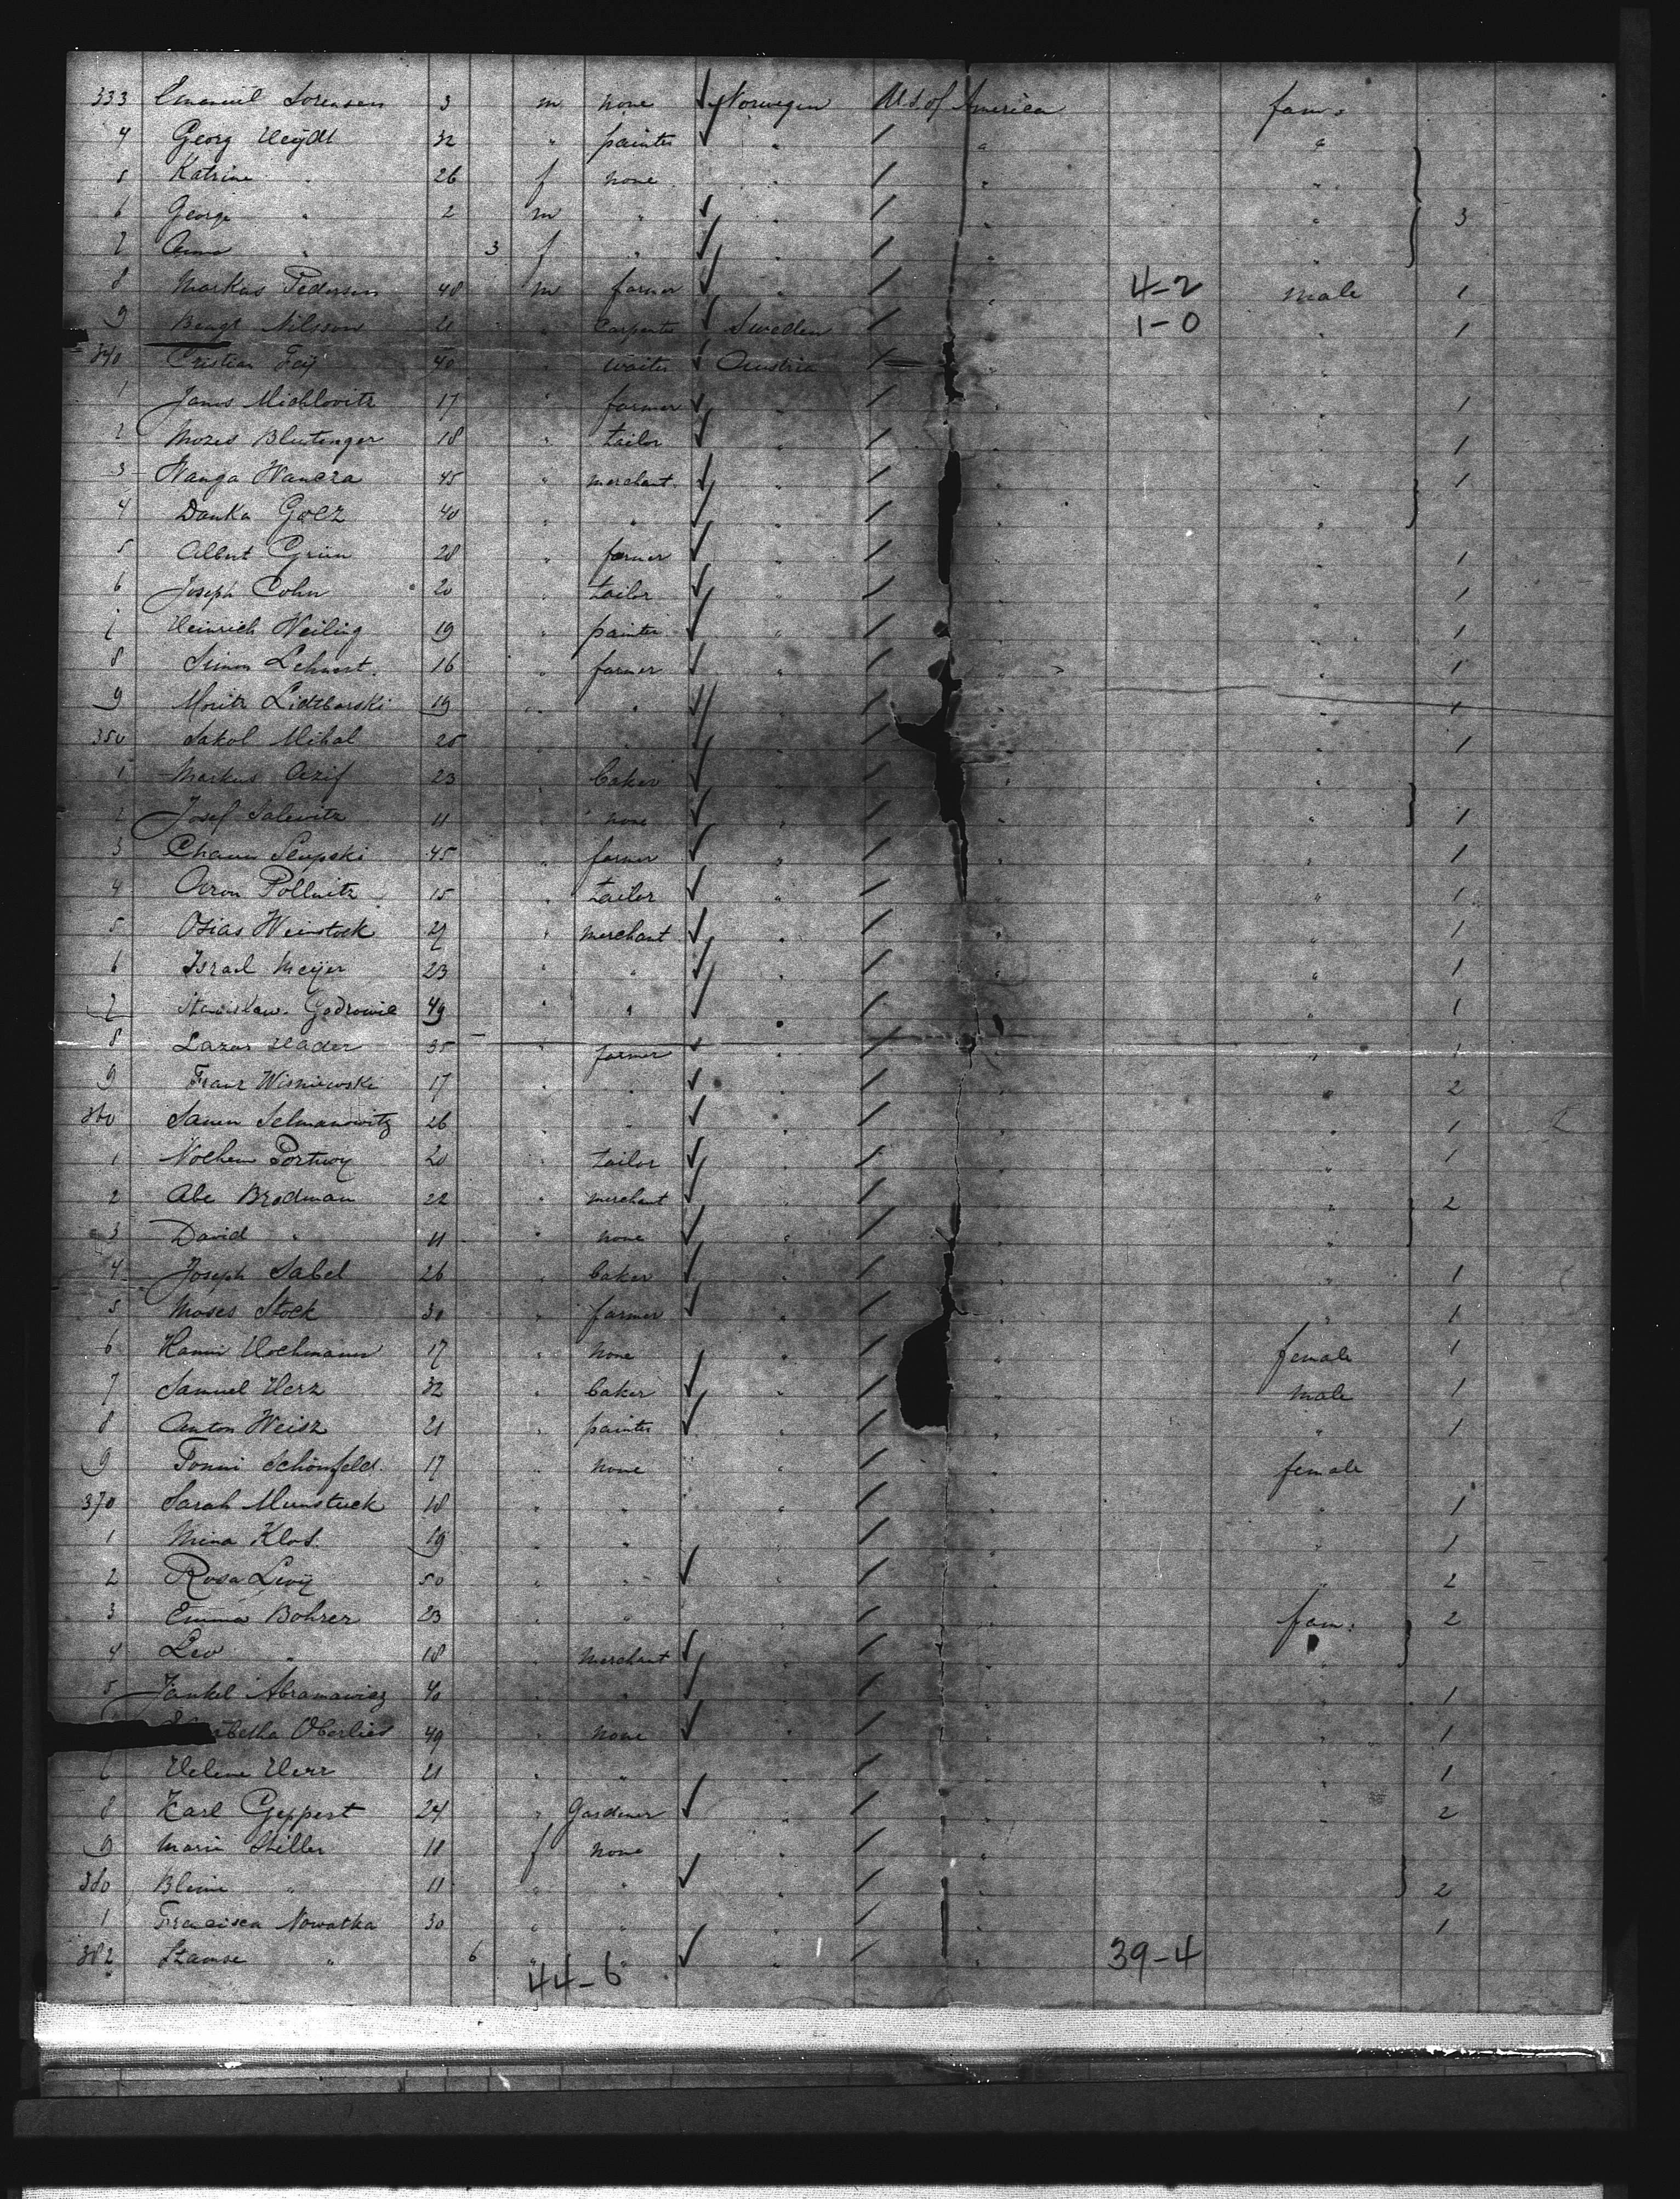 333 Emanuel Sorensen 3 m none Norwegen U.S. of America fam.
4 Georg Heydt 32 " painter " " "
5 Katrine " 26 f none " " "
6 Georg " 2 m " " " " 3
7 Anna " 3 f " " " "
8 Markus Pedersen 48 m farmer " " 4-2 male 1
9 Bengt Nilsson 21 " carpenter Sweden 1-0 " 1
340 Cristian Fey 40 " waiter Austria " "
1 Janos Michlovitz 17 " farmer " " " 1
2 Mozes Blutinger 18 " tailor " " " 1
3 Wanga Wancza 45 " merchant " " " 1
4 Danka Golz 40 " " " " "
5 Albert Grün 28 " farmer " " " 1
6 Joseph Cohn 20 " tailor " " " 1
7 Heinrich Weiling 19 " painter " " " 1
8 Simon Lehnert 16 " farmer " " " 1
9 Moritz Lidtbarski 19 " " " " " 1
350 Sakol Mihal 25 " " " " " 1
1 Markus 23 " baker " " "
2 Josef Salevitz 11 " none " " " 1
3 45 " farmer " " " 1
4 Aron Pollnitz 15 " tailor " " " 1
5 Osias Weinstock 27 " merchant " " " 1
6 Israel Meijer 23 " " " " " 1
7 Stanislaw 49 " " " " " 1
8 Lazar Hader 35 " farmer " " " 1
9 Franz Wisniewski 17 " " " " " 2
360 Selmanowitz 26 " " " " " 1
1 Nochem Portnoy 20 " tailor " " " 1
2 Abe Brodman 22 " merchant " " " 2
3 David " 11 " none " " "
4 Joseph Sabel 26 " baker " " " 1
5 Moses Stock 30 " farmer " " " 1
6 Hanni Hochmann 17 " none " " female 1
7 Samuel Herz 32 " baker " " male 1
8 Anton Weisz 21 " painter " " " 1
9 Tonni Schönfeld 17 " none " " female
370 Sarah Munstuck 18 " " " " " 1
1 Mina Klos 19 " " " " " 1
2 Rosa Levy 50 " " " " " 2
3 Emma Bohrer 23 " " " " fam. 2
4 Leo " 18 " merchant " " "
5 Jankel Abramawicz 40 " " " " " 1
Oberlies 49 " none " " " 1
7 Helene Herr 21 " " " " " 1
8 Karl Geppert 24 " gardener " " " 2
9 Marie Stiller 18 f none " "
380 " 11 " " " " 2
1 Nowatka 30 " " " " 1
382 " 6 " " " 39-4
44-6